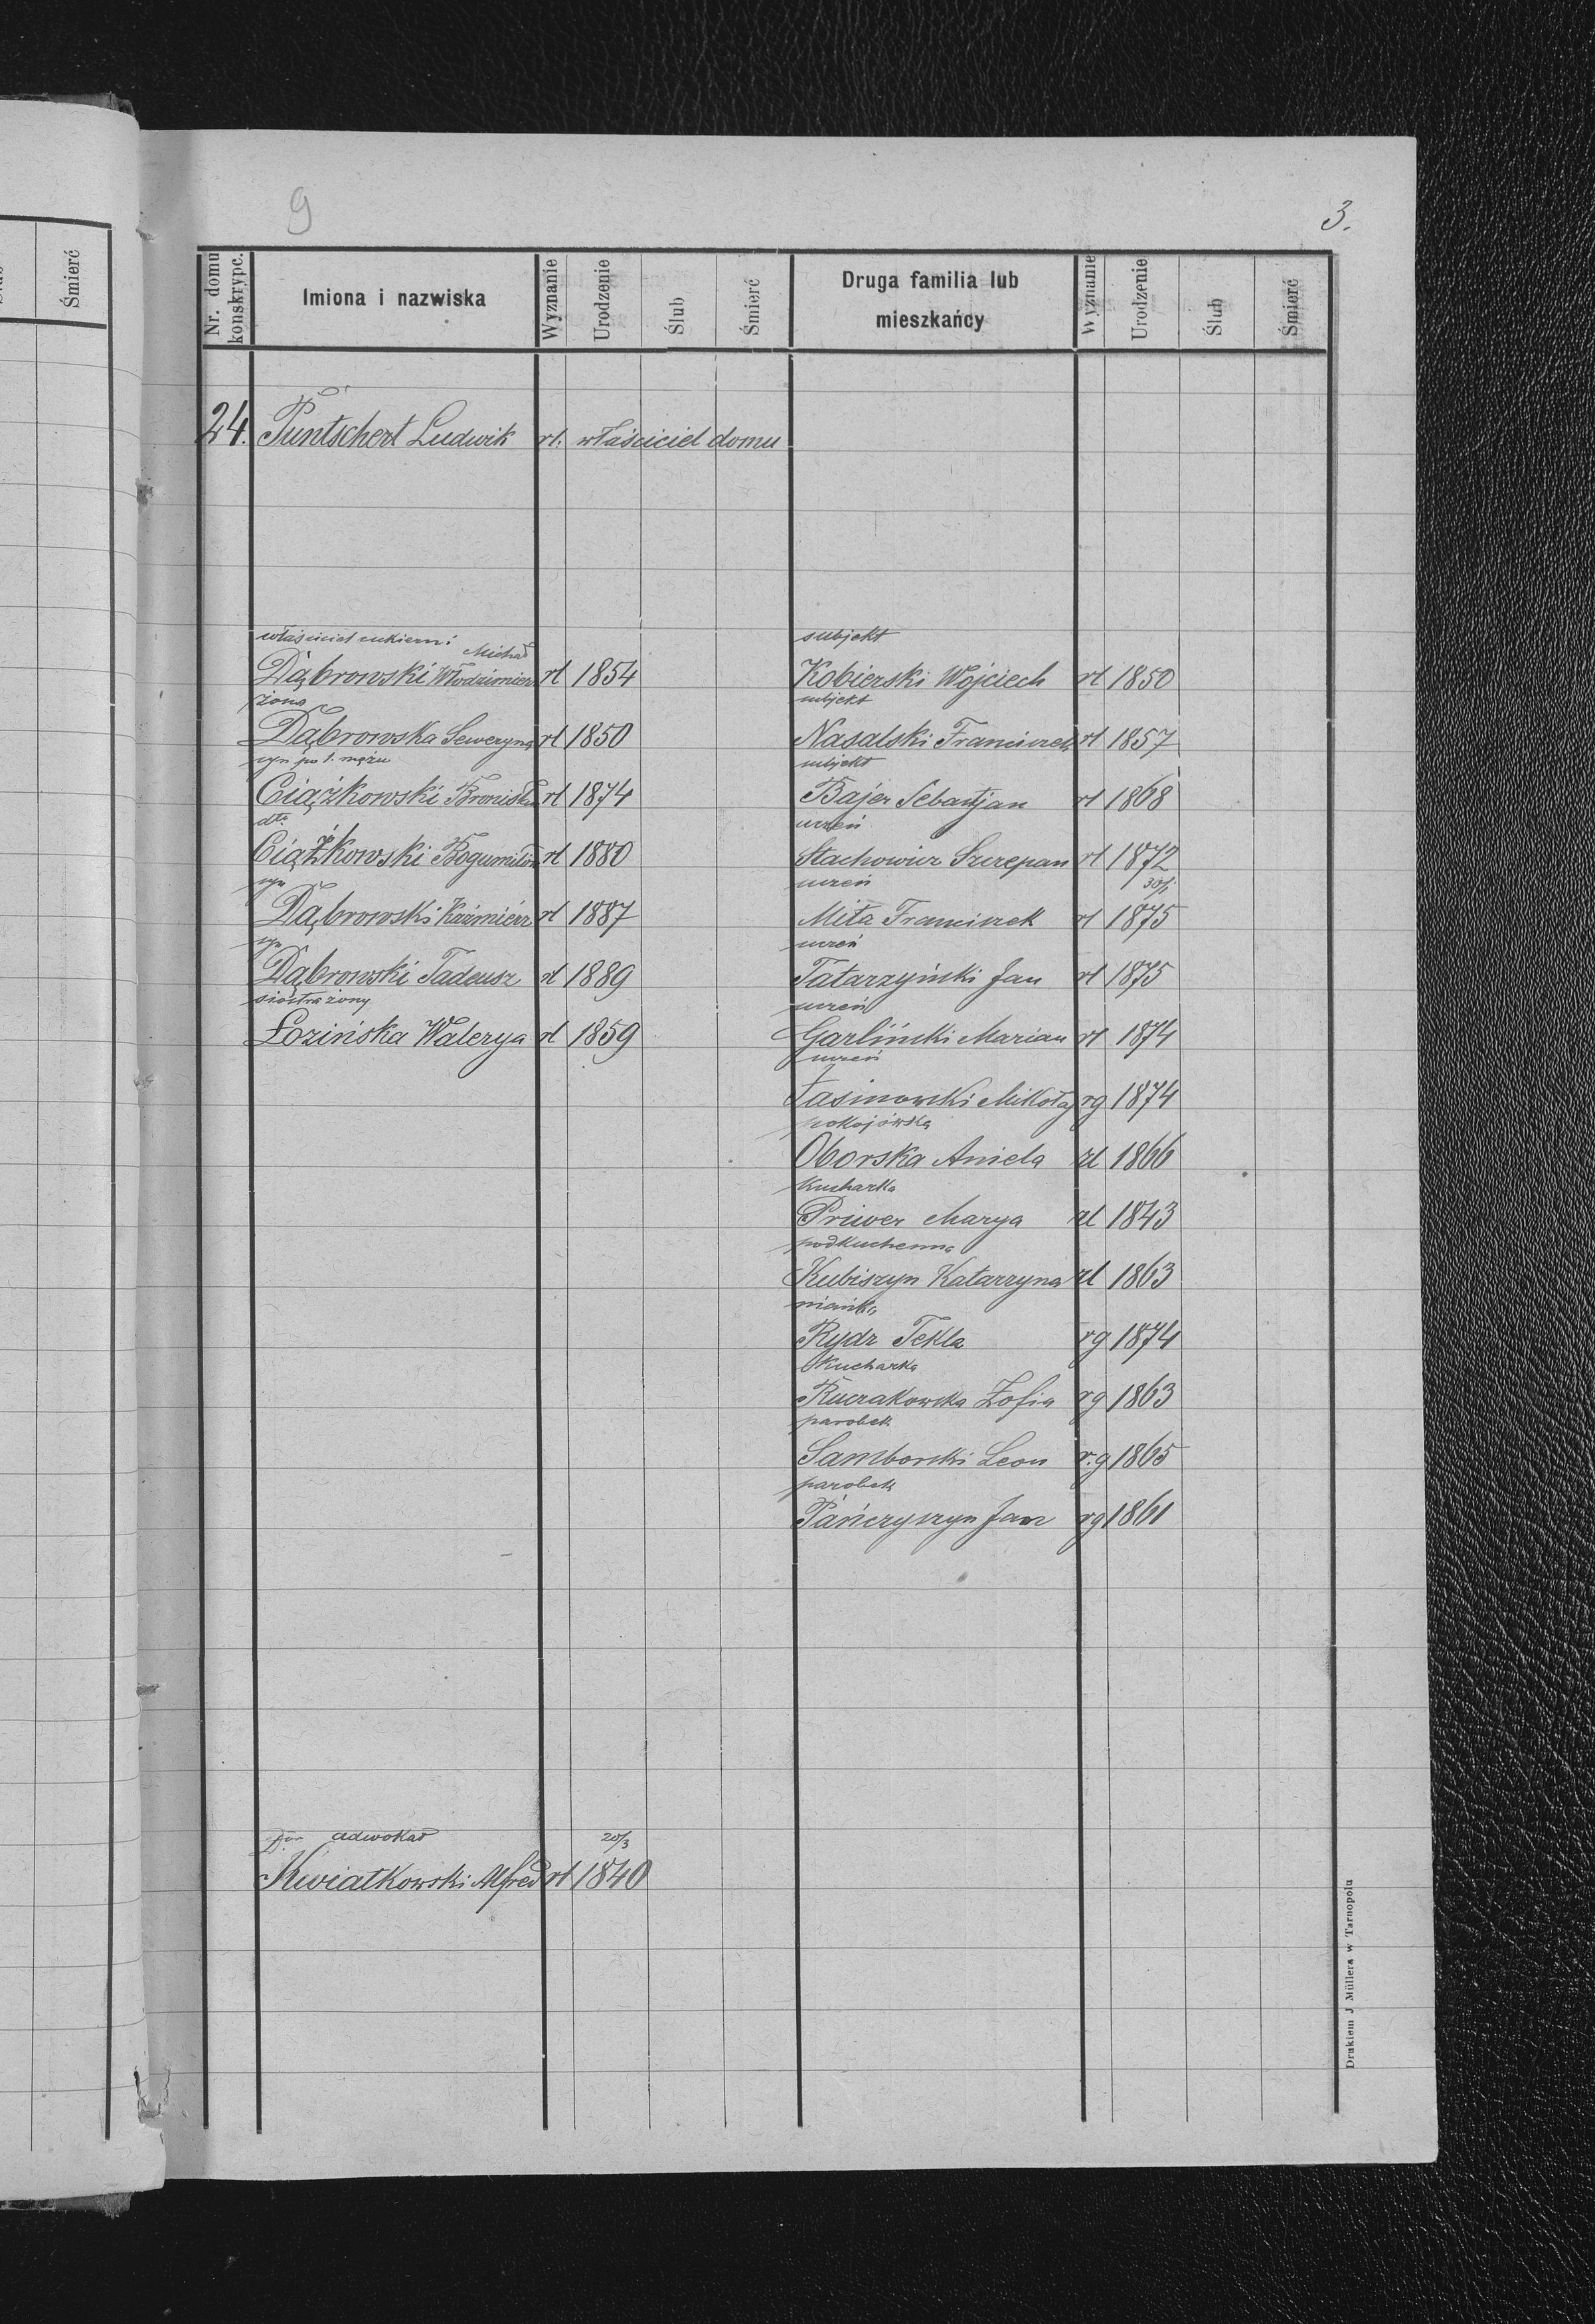 Śmierć
9
3.
Nr. domu konskrypc.
Imiona i nazwiska
Wyznanie
Urodzenie
Ślub
Śmierć
Druga familia lub mieszkańcy
Wyznanie
Urodzenie
Ślub
Śmierć
24. Puntschert Ludwik rl. właściciel domu
właściciel cukierni
Michał
Dąbrowski Włodzimierz rl 1854
żona
Dąbrowska Seweryna rl 1850
syn po 1. mężu
Ciążkowski Bronisław rl 1874
dto
Ciążkowski Bogumił rl 1880
syn
Dąbrowski Kaźmierz rl 1887
syn
Dąbrowski Tadeusz rl 1889
siostra żony
Łozińska Walerya rl 1859
Dor adwokat
20/3
Kwiatkowski Alfred rl 1840
subjekt
Kobierski Wojciech rl 1850
subjekt
Nasalski Franciszek rl 1857
subjekt
Bajer Sebastjan rl 1868
uczeń
Stachowicz Szczepan rl 1872
uczeń
Mita Franciszek rl 1875
uczeń
Tatarzyński Jan rl 1875
uczeń
Garliński Marian rl 1874
uczeń
Jasinowski Mikołaj rg 1874
pokojówka
Oborska Aniela rl 1866
Kucharka
Priwer Marya rl 1843
podkuchenna
Kubiszyn Katarzyna rl 1863
niańka
Rydz Tekla rg 1874
Kucharka
Ruczakowska Zofia rg 1863
parobek
Samborski Leon r.g 1865
parobek
Pańczyszyn Jan rg 1861
Drukiem J Müllera w Tarnopolu